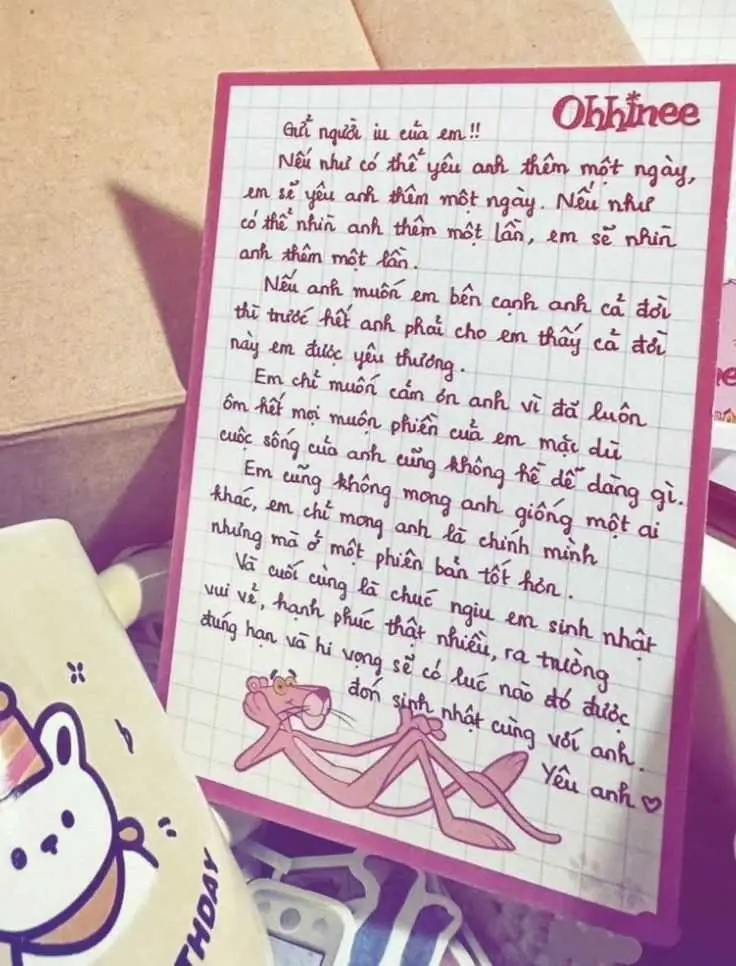 Ohhinee
Gửi người iu của em!!
Nếu như có thể yêu anh thêm một ngày,
em sẽ yêu anh thêm một ngày. Nếu như
có thể nhìn anh thêm một lần, em sẽ nhìn
anh thêm một lần.
Nếu anh muốn em bên cạnh anh cả đời
thì trước hết anh phải cho em thấy cả đời
này em được yêu thương.
Em chỉ muốn cảm ơn anh vì đã luôn
ôm hết mọi muộn phiền của em mặc dù
cuộc sống của anh cũng không hề dễ dàng gì.
Em cũng không mong anh giống một ai
khác, em chỉ mong anh là chính mình
nhưng mà ở một phiên bản tốt hơn.
Và cuối cùng là chúc ngiu em sinh nhật
vui vẻ, hạnh phúc thật nhiều, ra trường
đúng hạn và hi vọng sẽ có lúc nào đó được
đón sinh nhật cùng với anh.
Yêu anh ♡